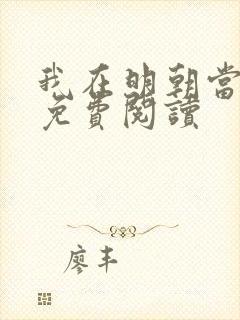 我在明朝當
免費閱讀
廖丰